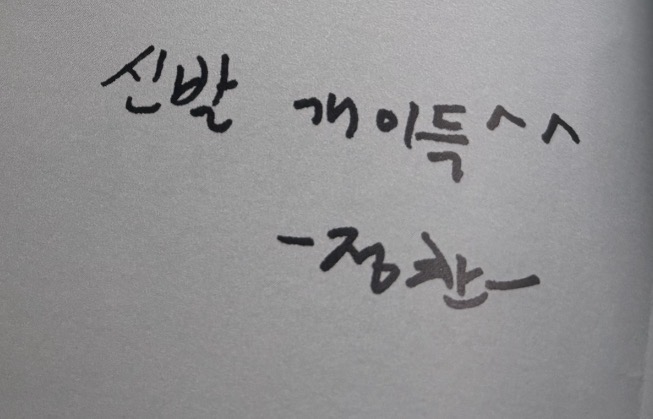 신발 개이득^^
-정찬-